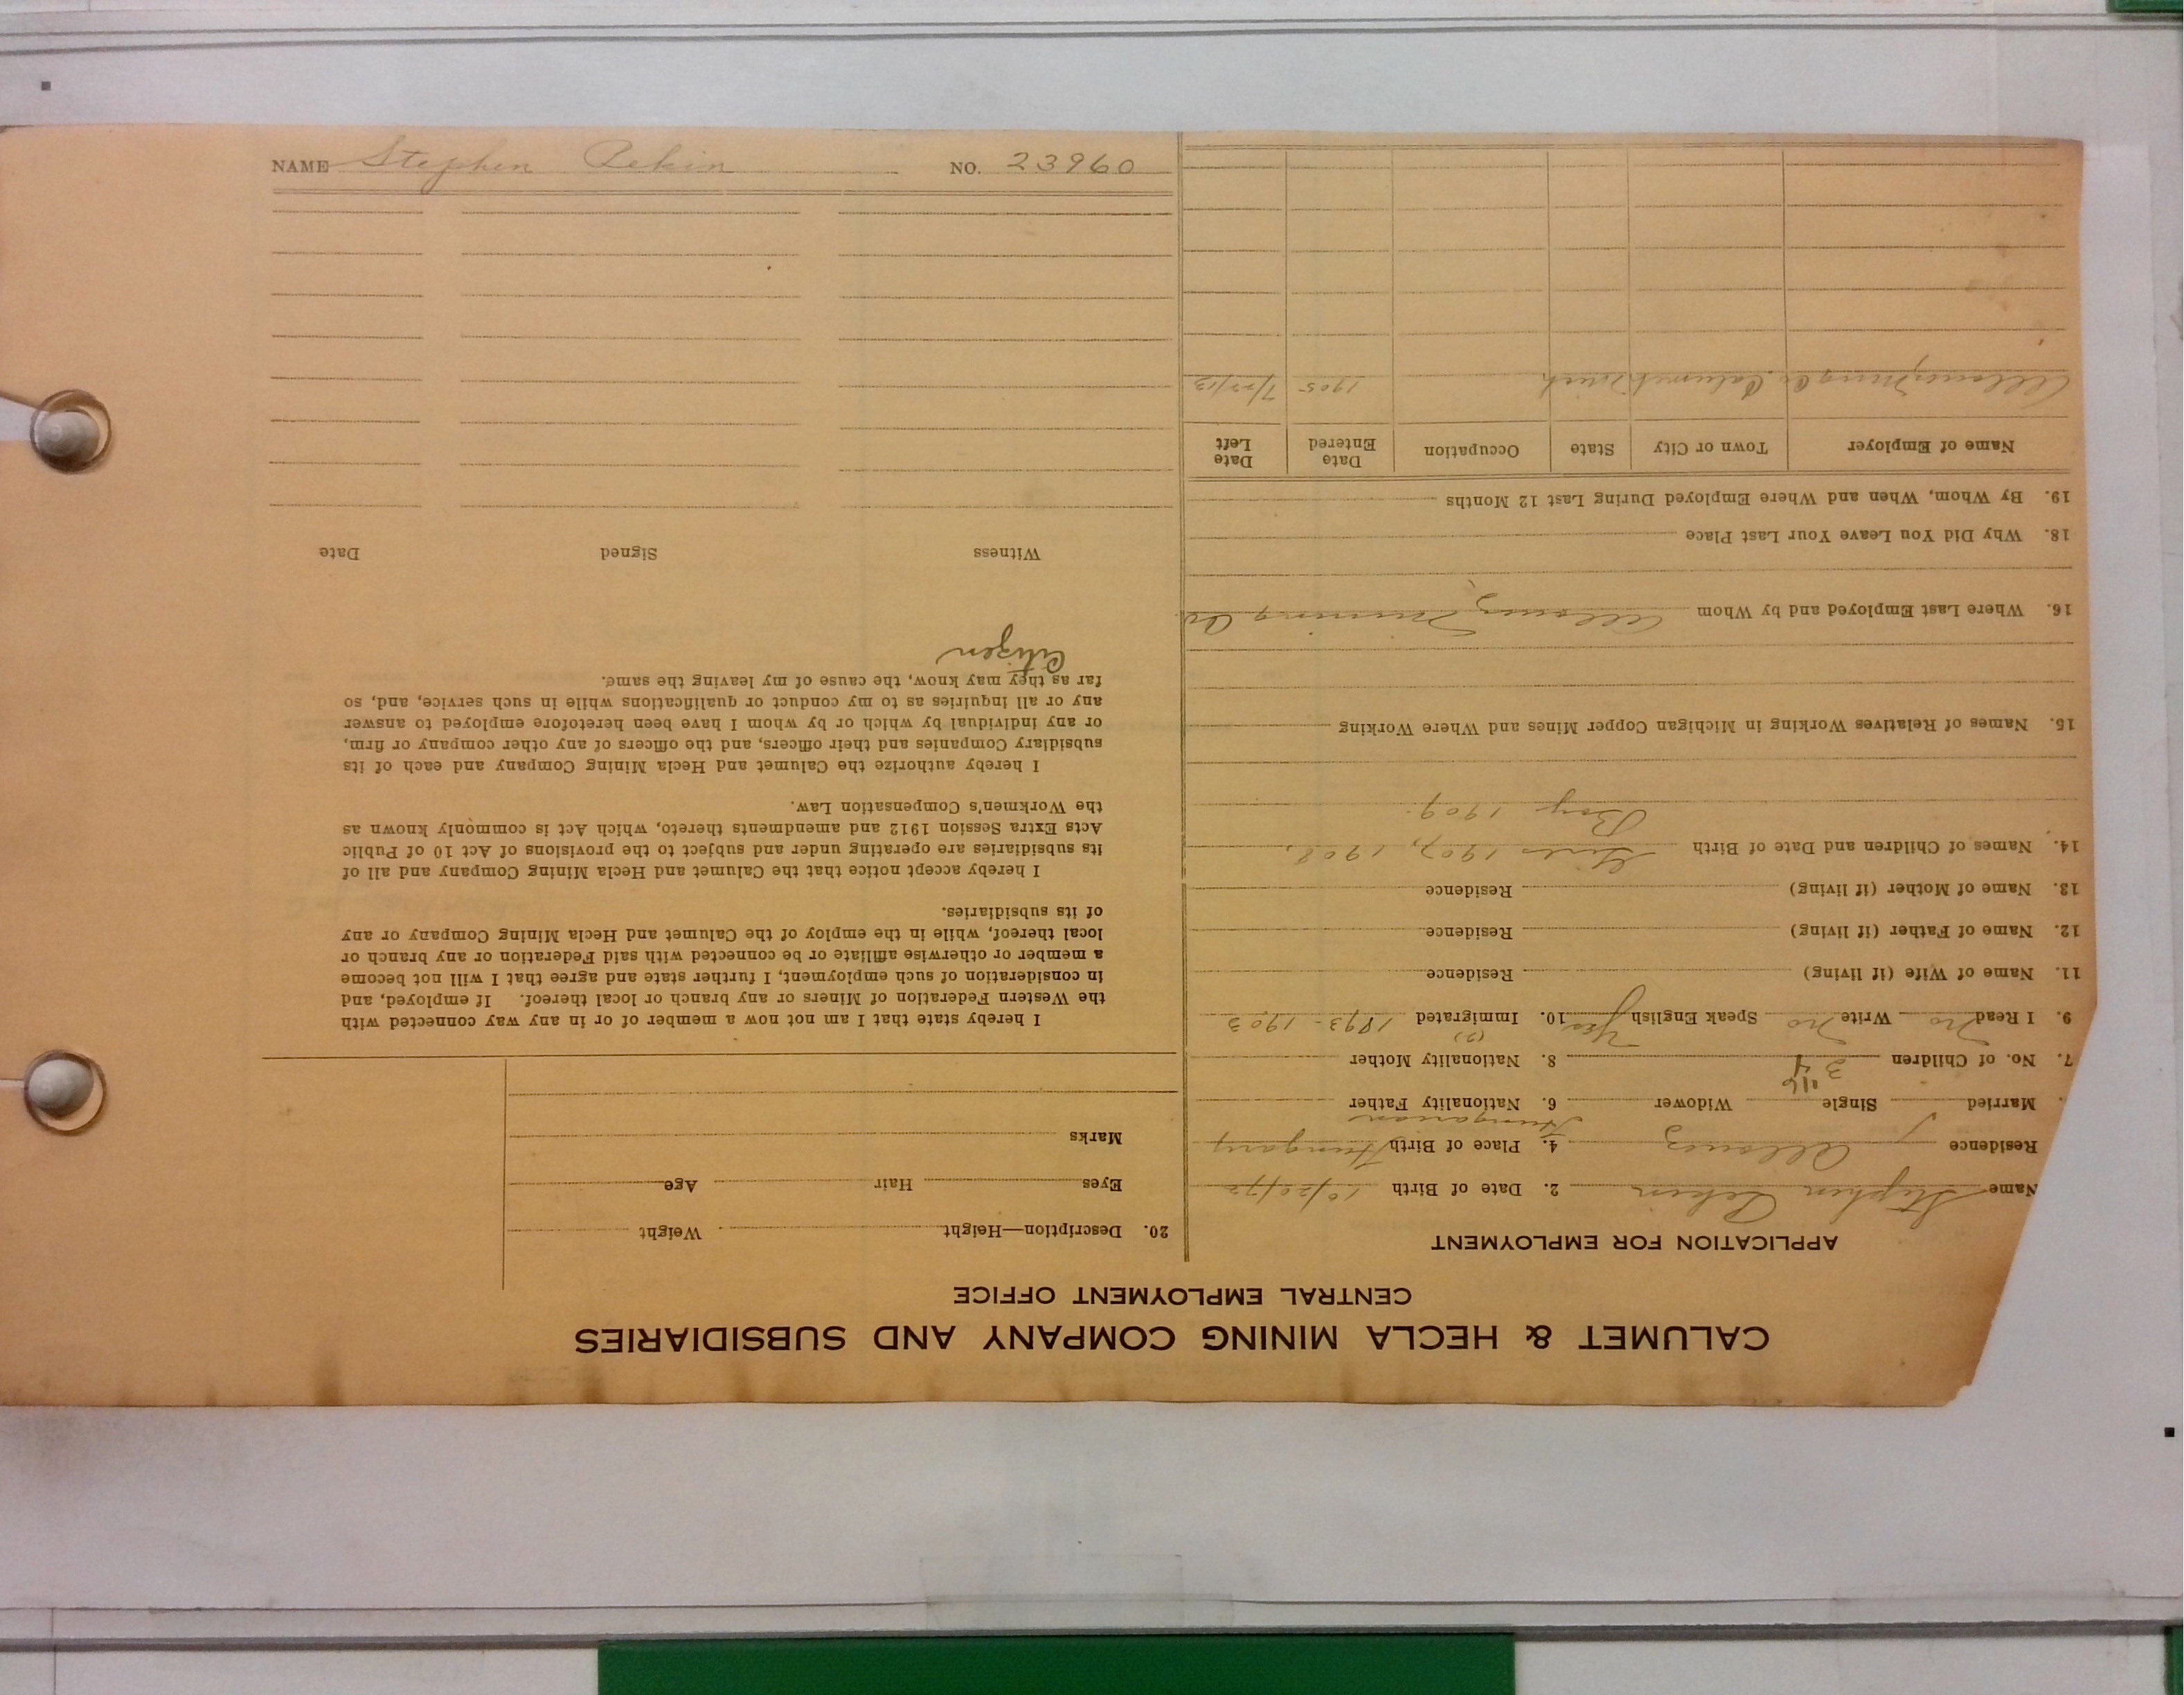 CALUMET & HECLA MINING COMPANY AND SUBSIDIARIES
CENTRAL EMPLOYMENT OFFICE
APPLICATION FOR EMPLOYMENT
Name Stephen Pekin 2. Date of Birth 10/20/72
Residence Allouez 4. Place of Birth Hungary
Hungarian
Married Single Widower 6. Nationality Father
"16
7. No. of Children 3 4 8. Nationality Mother
(2)
9. I Read No Write No Speak English Yes 10. Immigrated 1893 - 1903
11. Name of Wife (if living) Residence
12. Name of Father (if living) Residence
13. Name of Mother (if living) Residence
14. Names of Children and Date of Birth Girls 1907, 1908,
Boy 1909.
15. Names of Relatives Working in Michigan Copper Mines and Where Working
16. Where Last Employed and by Whom Allouez Mining Co
18. Why Did You Leave Your Last Place
19. By Whom, When and Where Employed During Last 12 Months
Name of Employer Town or City State Occupation Date Entered Date Left
Allouez Mining Co Calumet Mich 1905 7/23/13
20. Description—Height Weight
Eyes Hair Age
Marks
I hereby state that I am not now a member of or in any way connected with
the Western Federation of Miners or any branch or local thereof. If employed, and
in consideration of such employment, I further state and agree that I will not become
a member or otherwise affiliate or be connected with said Federation or any branch or
local thereof, while in the employ of the Calumet and Hecla Mining Company or any
of its subsidiaries.
I hereby accept notice that the Calumet and Hecla Mining Company and all of
its subsidiaries are operating under and subject to the provisions of Act 10 of Public
Acts Extra Session 1912 and amendments thereto, which Act is commonly known as
the Workmen's Compensation Law.
I hereby authorize the Calumet and Hecla Mining Company and each of its
subsidiary Companies and their officers, and the officers of any other company or firm,
or any individual by which or by whom I have been heretofore employed to answer
any or all inquiries as to my conduct or qualifications while in such service, and, so
far as they may know, the cause of my leaving the same.
Citizen
Witness Signed Date
NAME Stephen Pekin NO. 23960